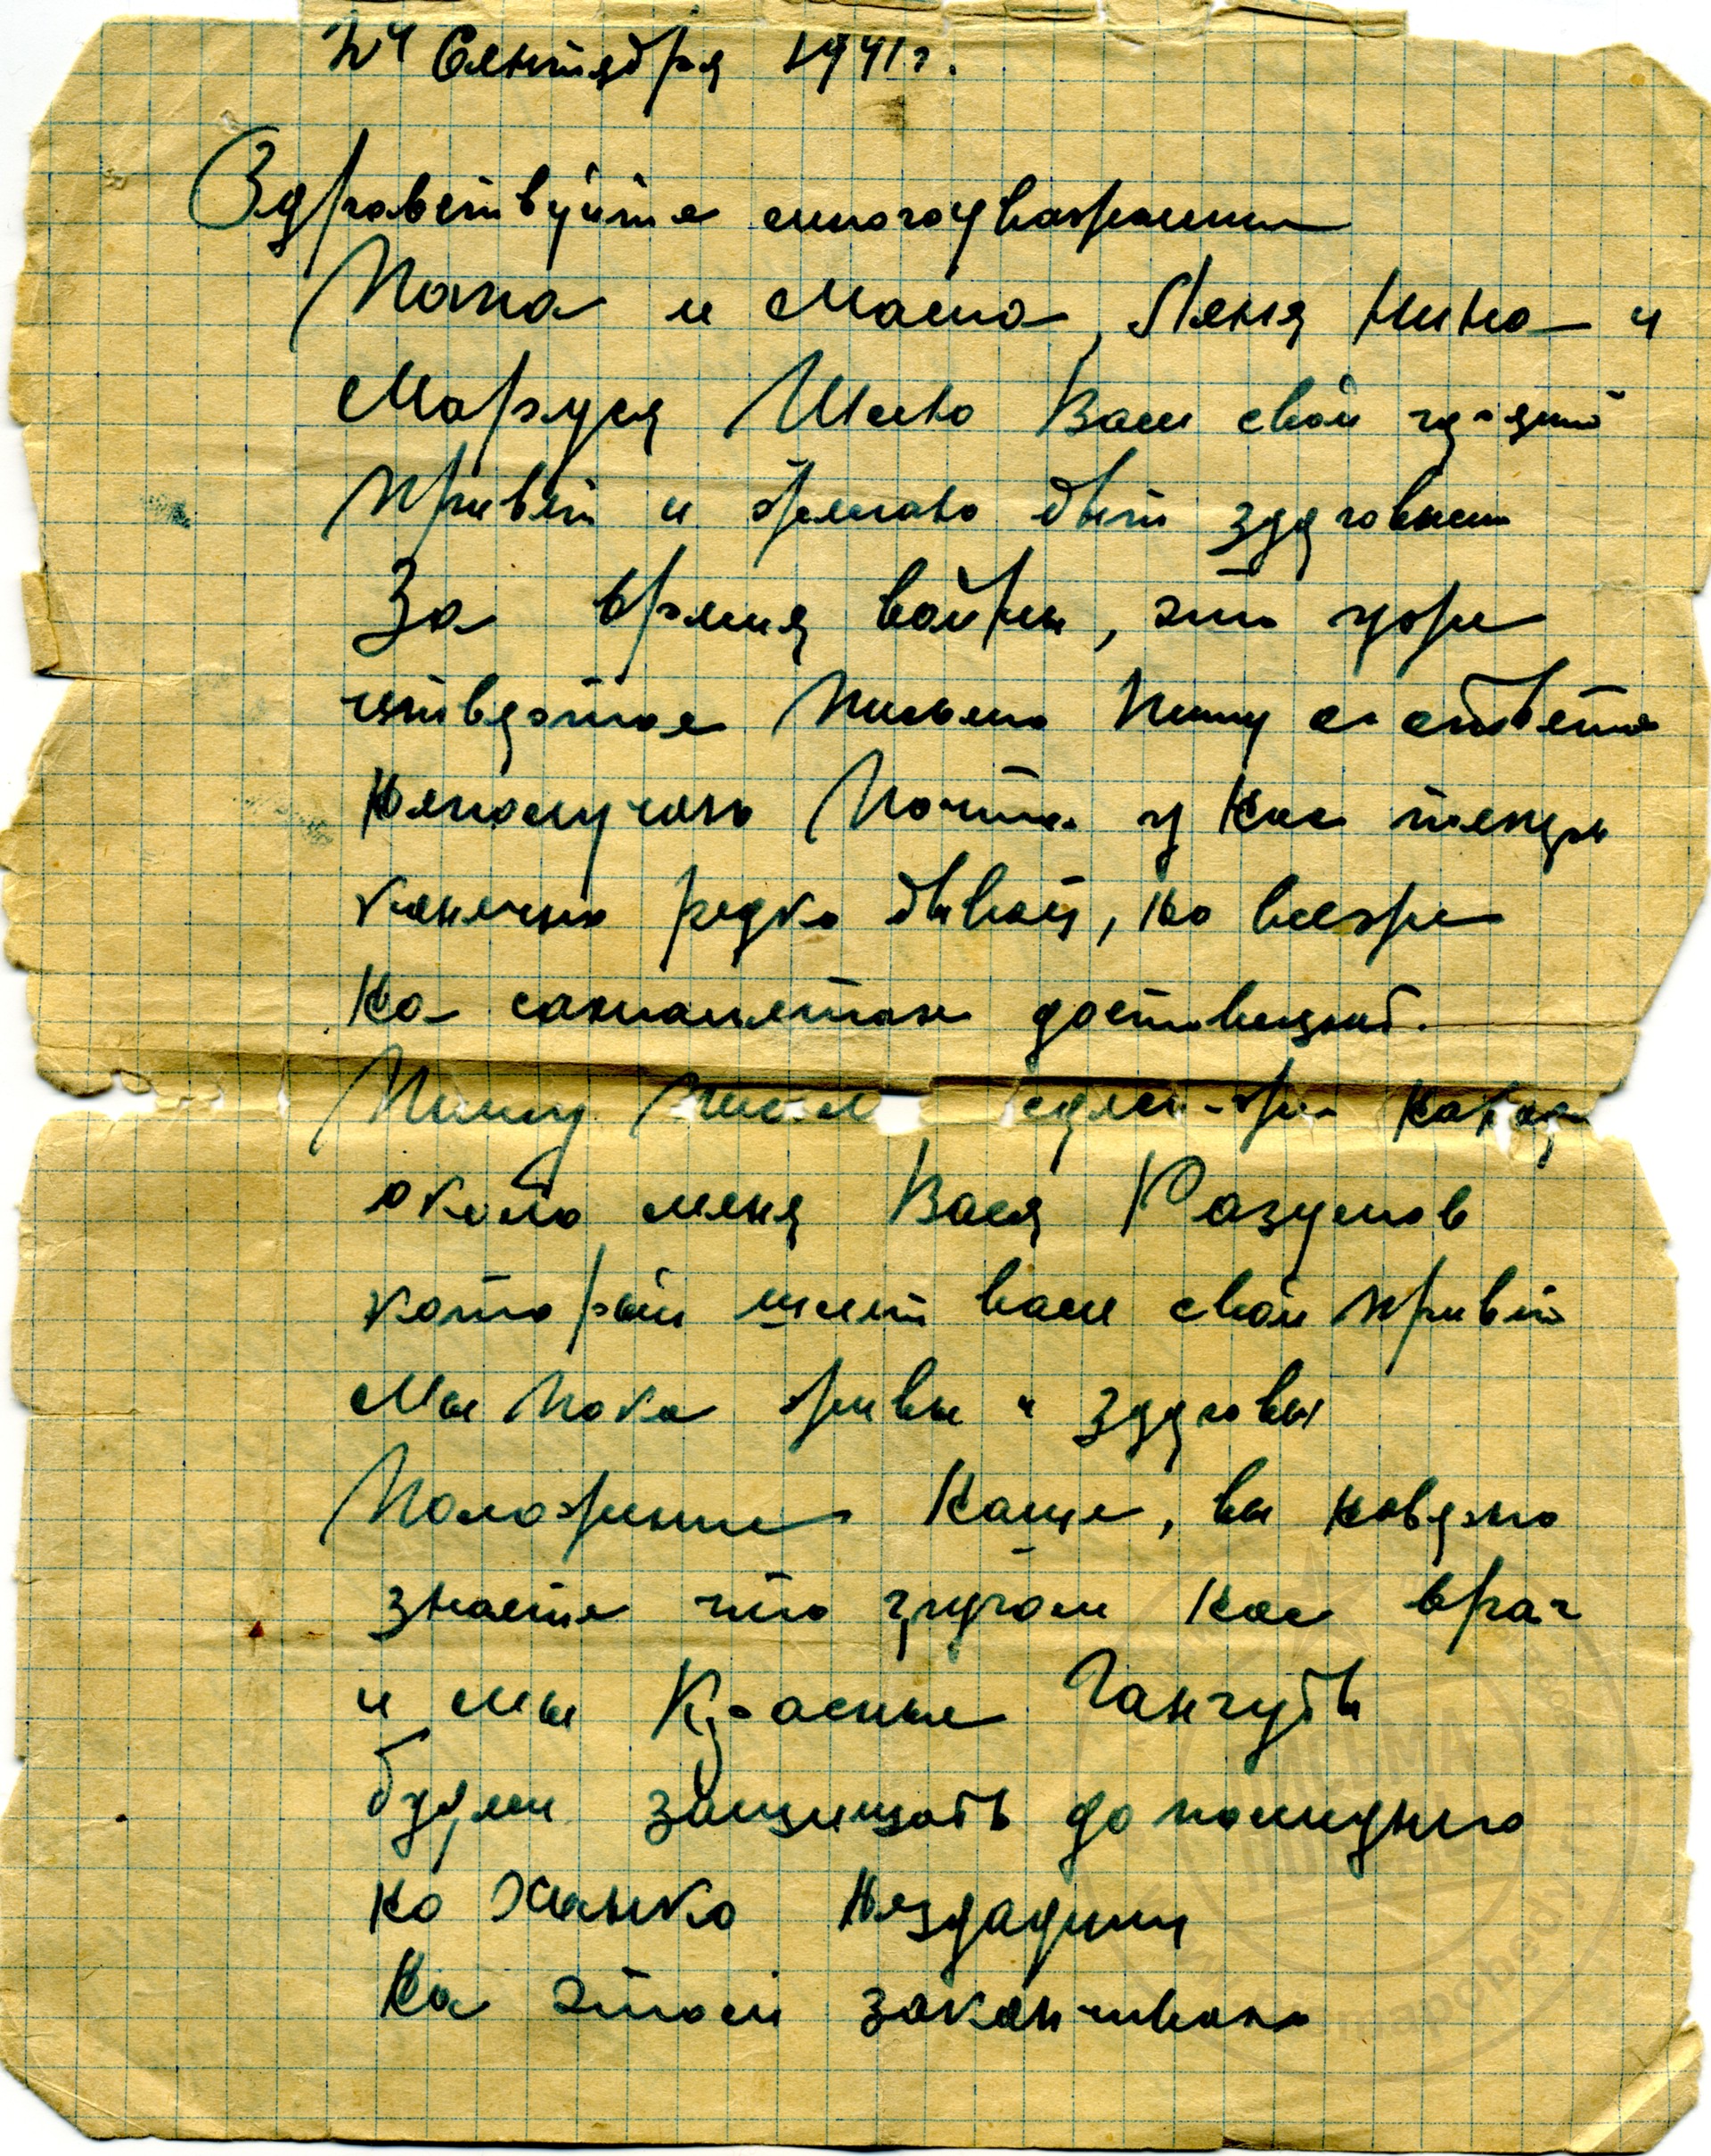 24 Сентября 1941 г.
Здравствуйте многоуважаемы
Папа и Мама, Леня Нина и
Маруся Шлю Вам свой горячий
привет и желаю быть здоровыми
За время войны, это уже
четвертое письмо пишу а ответа
неполучаю Почта у нас теперь
конечно редко бывает, но всеже
на самолетах доставляют.
Пишу
около меня Вася Разумов
который шлет вам свой привет
Мы пока живы и здоровы
Положение наше, вы наверно
знаете что кругом нас враг
и мы Красные Гангутцы
будем защищать до последнего
но Ханко нездадим
На этом заканчиваю
ПИСЬМА
ПОБЕДЫ